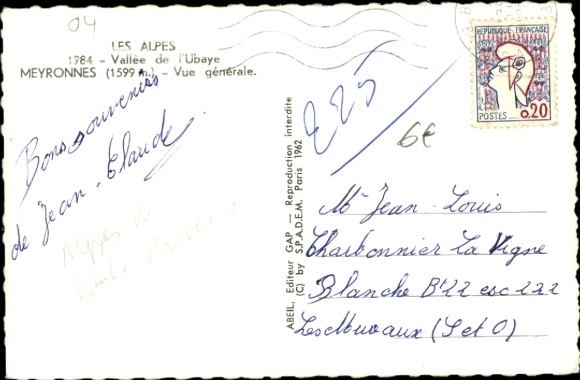 04
LES ALPES
1984 - Vallée de l'Ubaye
MEYRONNES (1599 m.) - Vue générale.
Bons souvenirs
de Jean-Claude
Alpes de
Haute Provence
ABEIL, Editeur GAP — Reproduction interdite
(C) by S.P.A.D.E.M. Paris 1962
REPUBLIQUE FRANÇAISE
POSTES 0,20
225
6€
Mr Jean-Louis
Charbonnier La Vigne
Blanche Bt 22 esc 222
Les Mureaux (S et O)